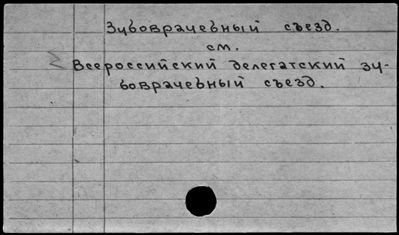 Зубоврачебный съезд.
см.
Всероссийский делегатский зу-
боврачебный съезд.